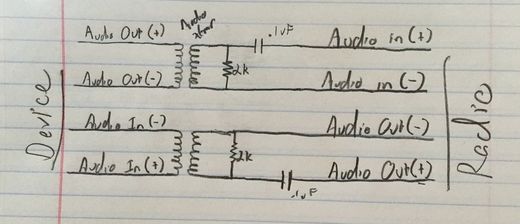 Audio Out (+)
Audio
xfmr
.1uF
Audio in (+)
2k
Audio Out (-)
Audio in (-)
Device
Radio
Audio In (-)
Audio Out (-)
2k
Audio In (+)
Audio Out (+)
.1uF